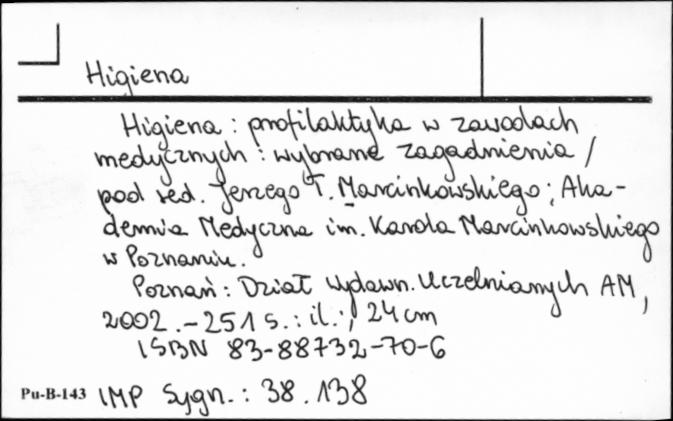 Higiena
Higiena : profilaktyka w zawodach
medycznych : wybrane zagadnienia /
pod red. Jerzego T. Marcinkowskiego ; Aka-
demia Medyczna im. Karola Marcinkowskiego
w Poznaniu.
Poznań : Dział Wydawn. Uczelnianych AM,
2002.-251 s. : il. ; 24 cm
ISBN 83-88732-70-6
Pu-B-143 IMP Sygn. : 38.138